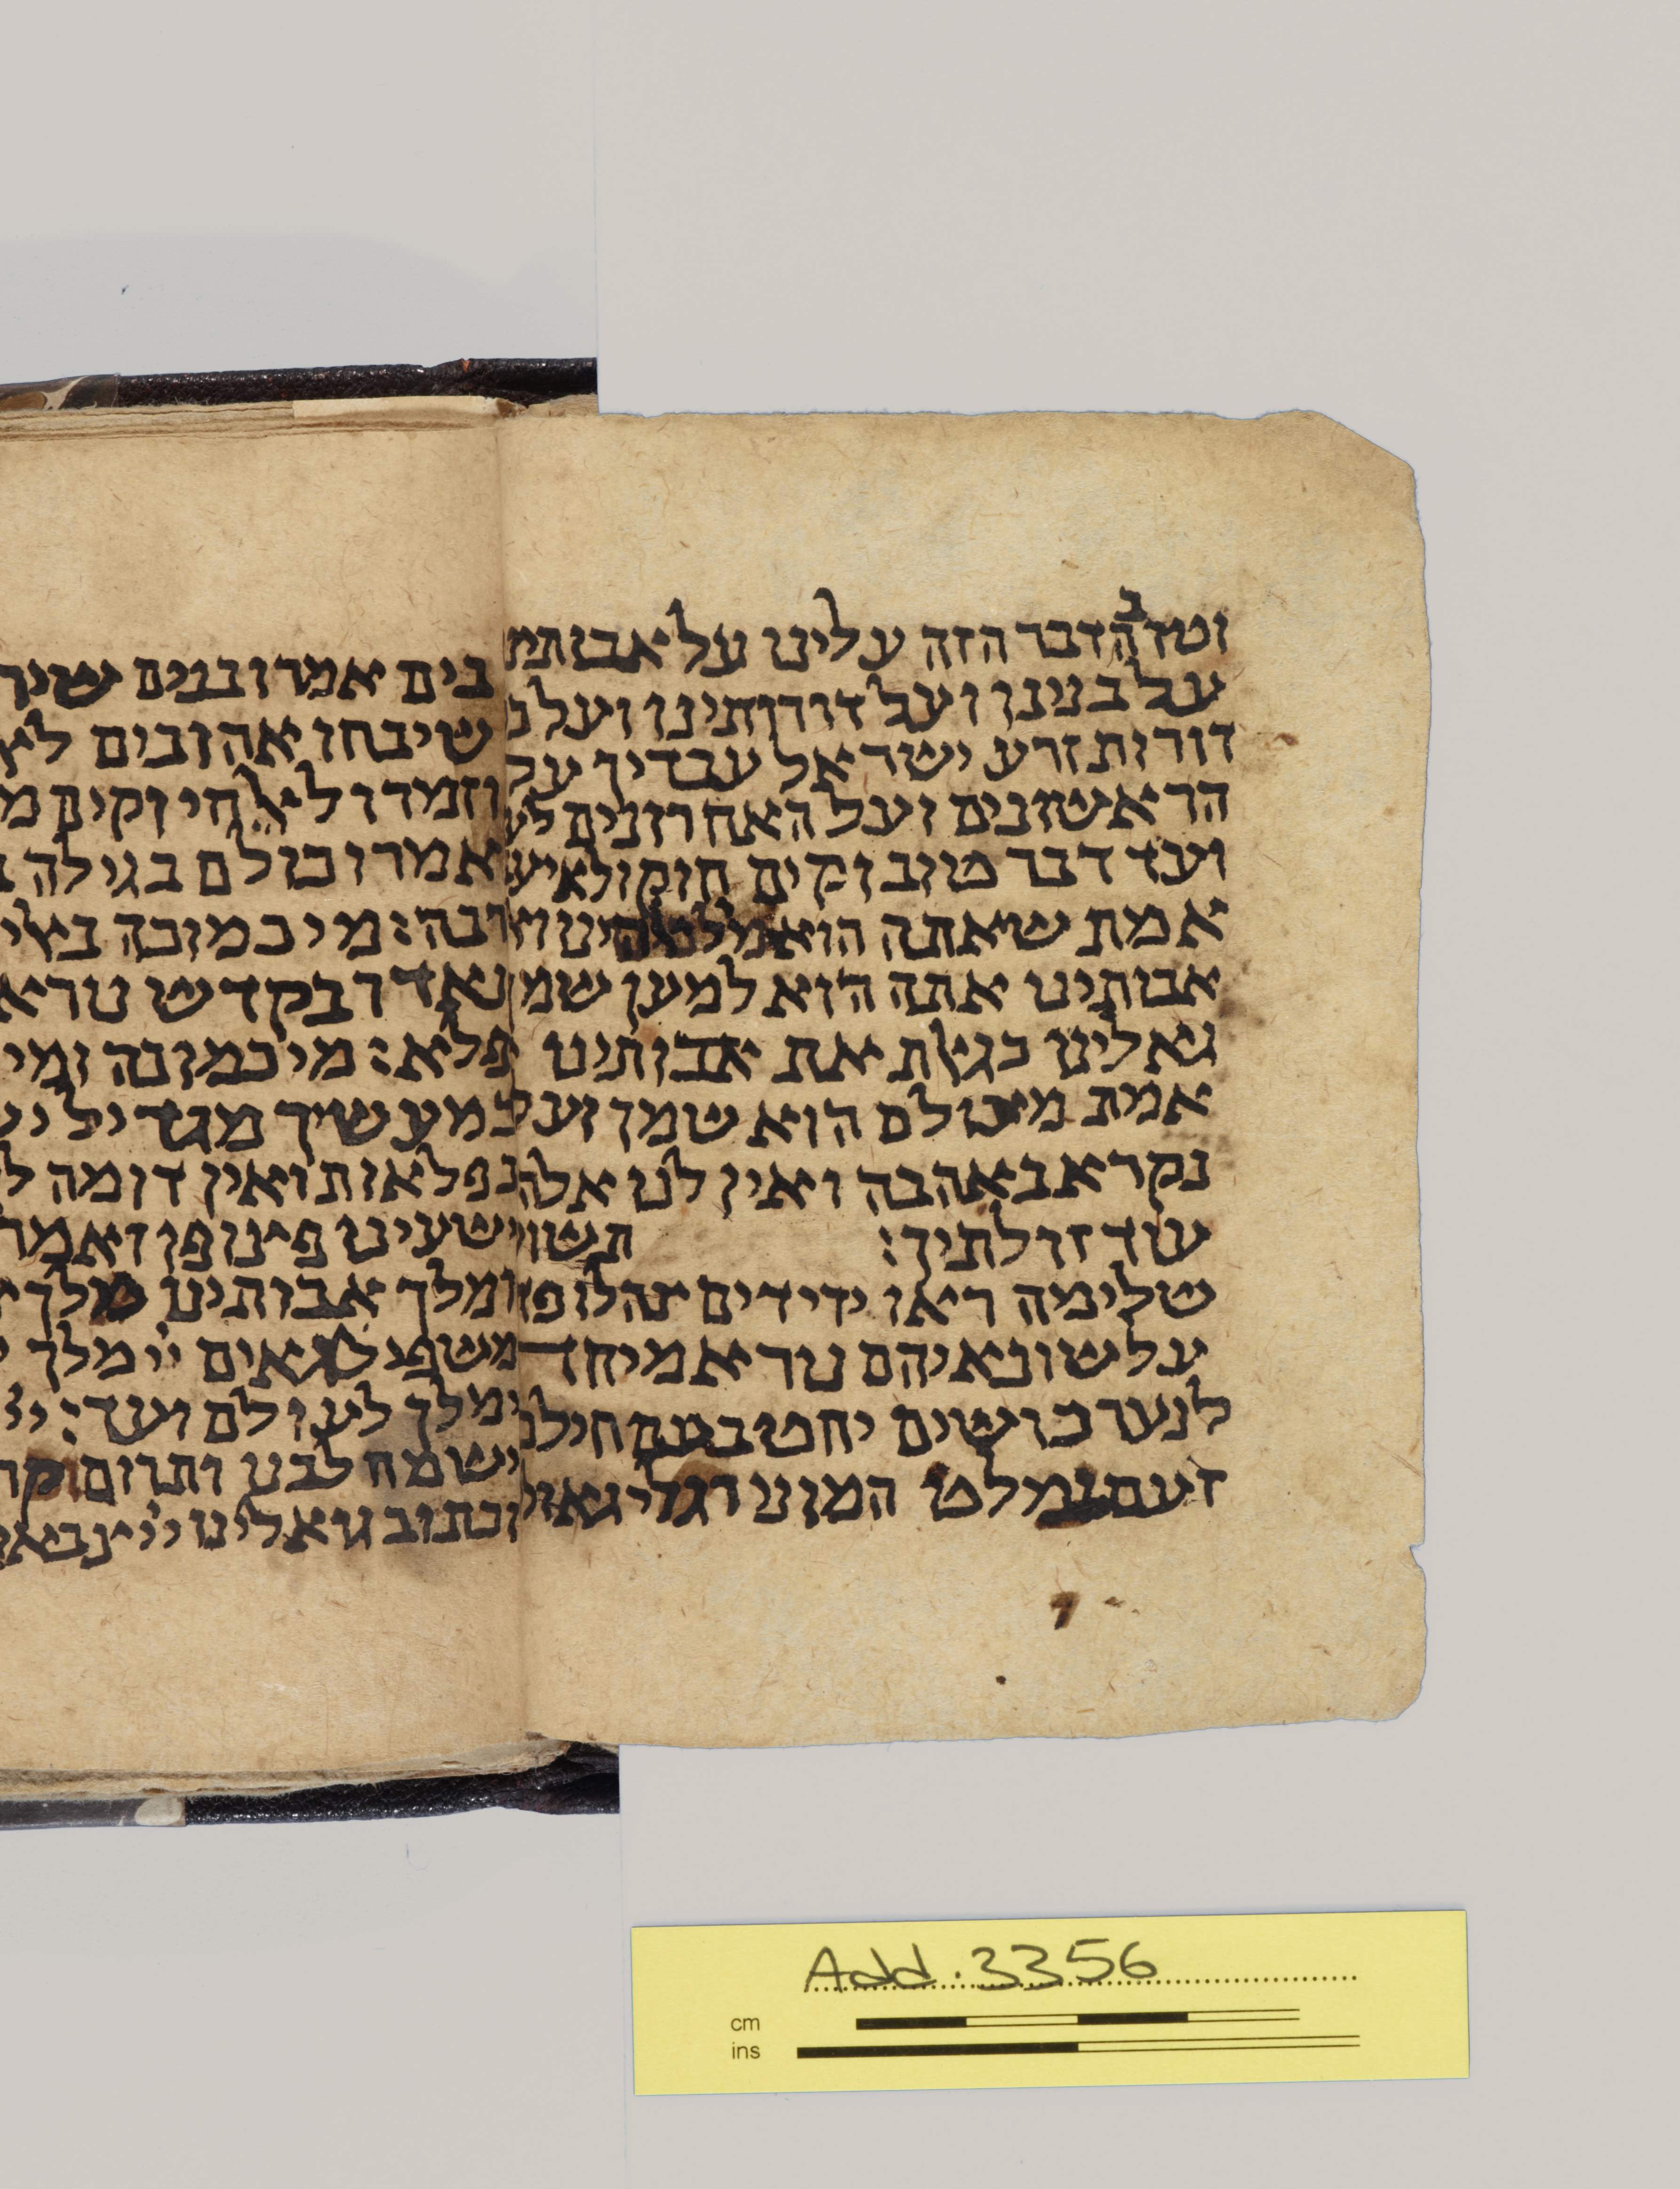 וטוב הדבר הזה עלינו על אבותינו
על בנינו ועל דורותינו ועל כ
דורות זרע ישראל עבדיך על
הראשונים ועל האחרונים לע
ועד דבר טוב וקים חוק ולא יע
אמת שאתה הוא
אבותינו אתה הוא למען שמ
גאלינו כגאלת את אבותינו
אמת מעולם הוא שמך ועל
נקרא באהבה ואין לנו אלה
עוד זולתיך: תשוע
שלימה ראו ידידים
על שונאיהם נורא מיחד
לנער כושים
זעם המונו רגלי גאול
בים אמרו בנים שיר
שיבחו אהובים לא
וזמרו לאל חי וקים מ
אמרו כולם בגילה ב
רבה: מי כמוכה באלי
נאדר בקדש נורא
פלא: מי כמוכה ומי
כמעשיך מגדיל יש
נפלאות ואין דומה ל
ישעינו פינו פן ואמר
ומלך אבותינו מלך
משפט לגאים ייי מלך
ימלך לעולם ועד: ייי
ישמח לבנו ותרום קר
וכתוב גואלינו ייי צבאו
Add. 3356
cm
ins